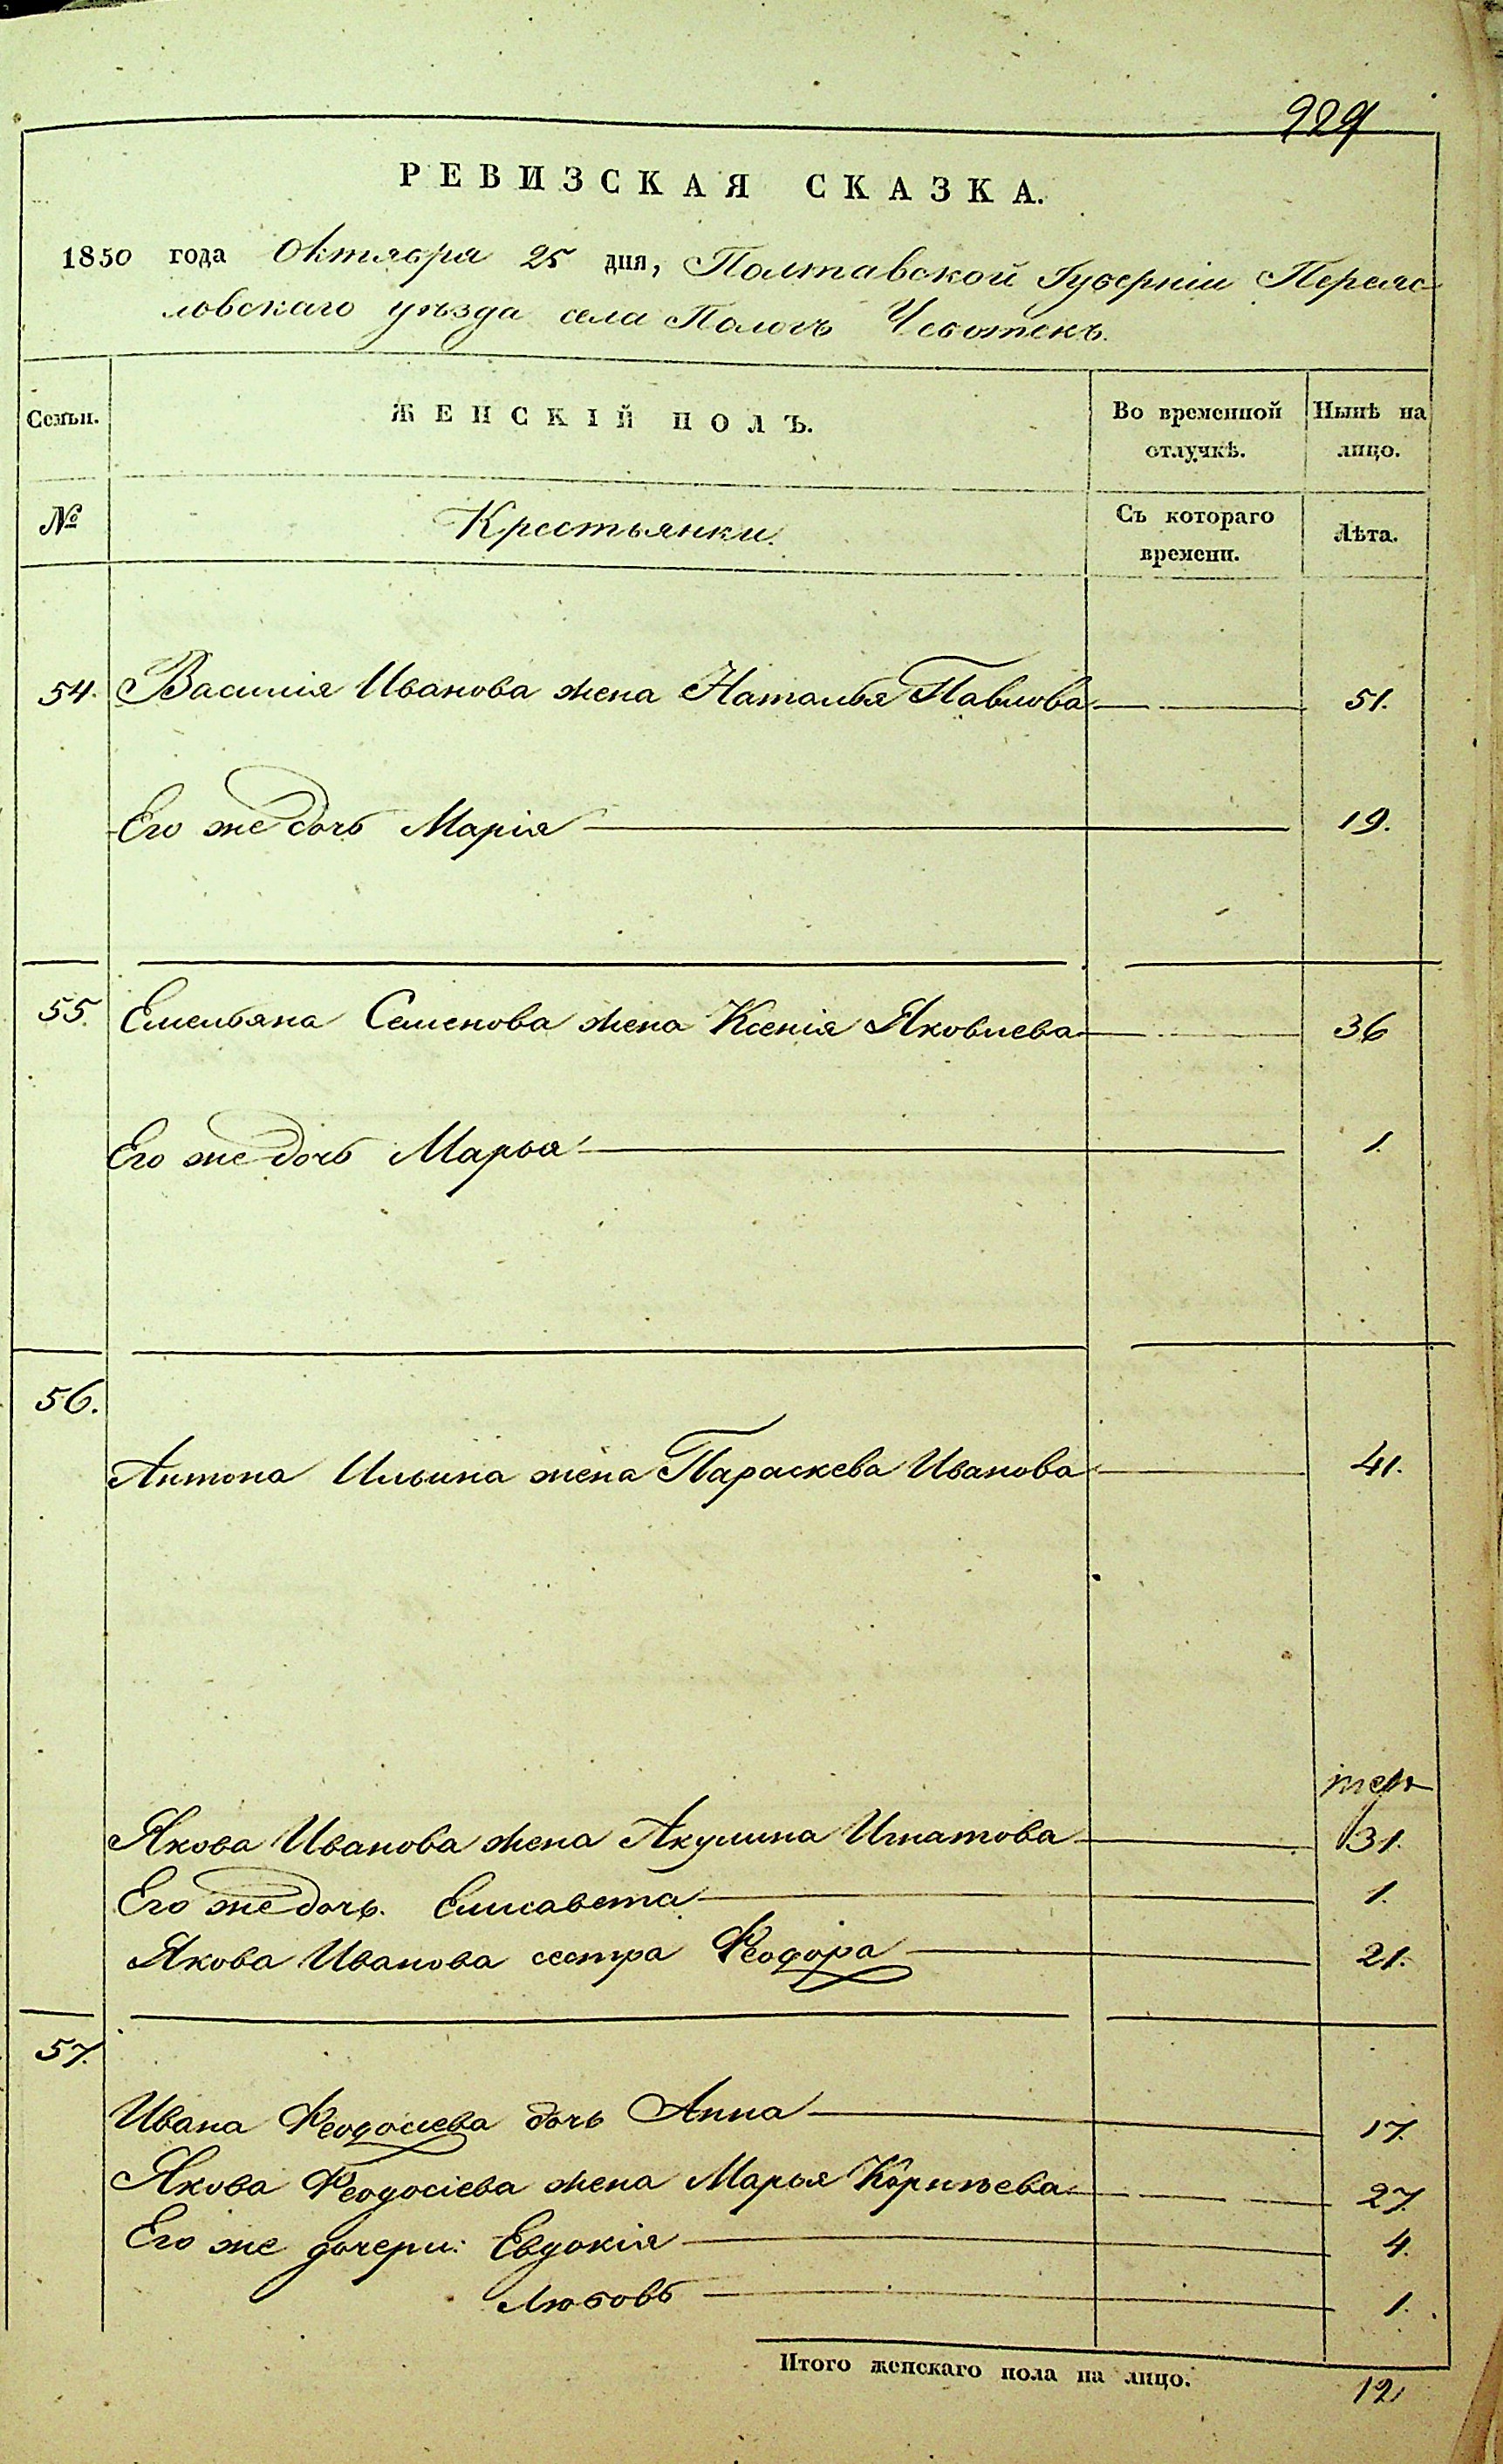 229
РЕВИЗСКАЯ СКАЗКА.
1850 года Октября 25 дня, Полтавской Губерніи Переяс-
ловскаго уѣзда села Пологъ Чевотекъ.
Семьи. ЖЕНСКІЙ ПОЛЪ. Во временной Нынѣ на
отлучкѣ. лицо.
№ Крестьянки. Съ котораго Лѣта.
времени.
54. Василія Иванова жена Наталья Павлова 51.
Его же дочь Марія 19.
55. Емельяна Семенова жена Ксенія Яковлева 36
Его же дочь Марья 1.
56.
Антона Ильина жена Параскева Иванова 41.
Якова Иванова жена Акулина Игнатова 31.
Его же дочь. Елисавета 1.
Якова Иванова сестра Феодора 21.
57.
Ивана Феодосиева дочь Анна 17.
Якова Феодосіева жена Марья Корнѣева 27.
Его же дочери: Евдокія 4.
Любовь 1.
Итого женскаго пола на лицо. 12